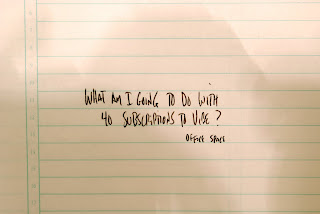 WHAT AM I GOING TO DO WITH
40 SUBSCRIPTIONS TO VIBE?
OFFICE SPACE